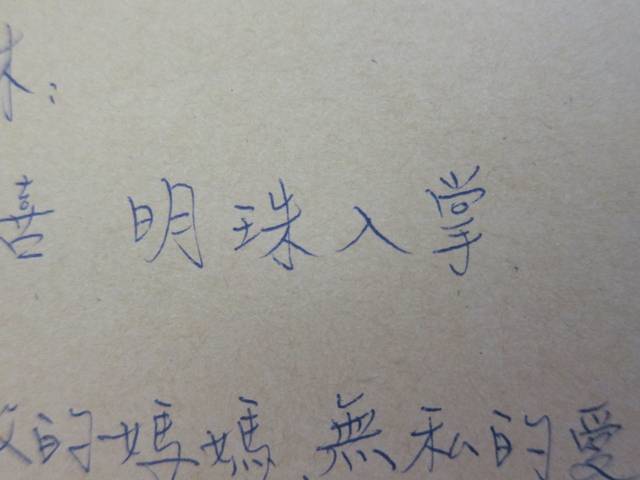 ：
喜 明珠入掌
的媽媽 無私的愛